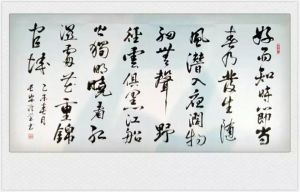 好雨知時節當
春乃發生隨
風潛入夜潤物
細無聲野
徑雲俱黑江船
火獨明曉看紅
濕處花重錦
官城
乙未春月